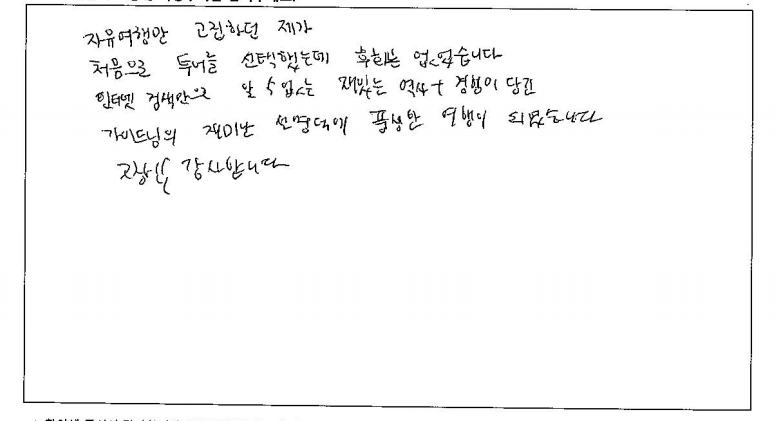 자유여행만 고집하던 제가
처음으로 투어를 선택했는데 후회는 없었습니다
인터넷 검색만으로 알 수 없는 재밌는 역사 + 경험이 담긴
가이드님의 재미난 설명덕에 풍성한 여행이 되었습니다
감사합니다